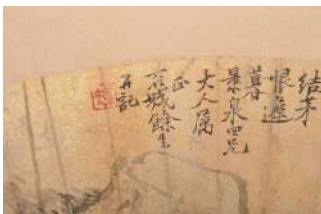 結茅
恨遲
暮
景泉四兄
大人属
正
城餘生
再記